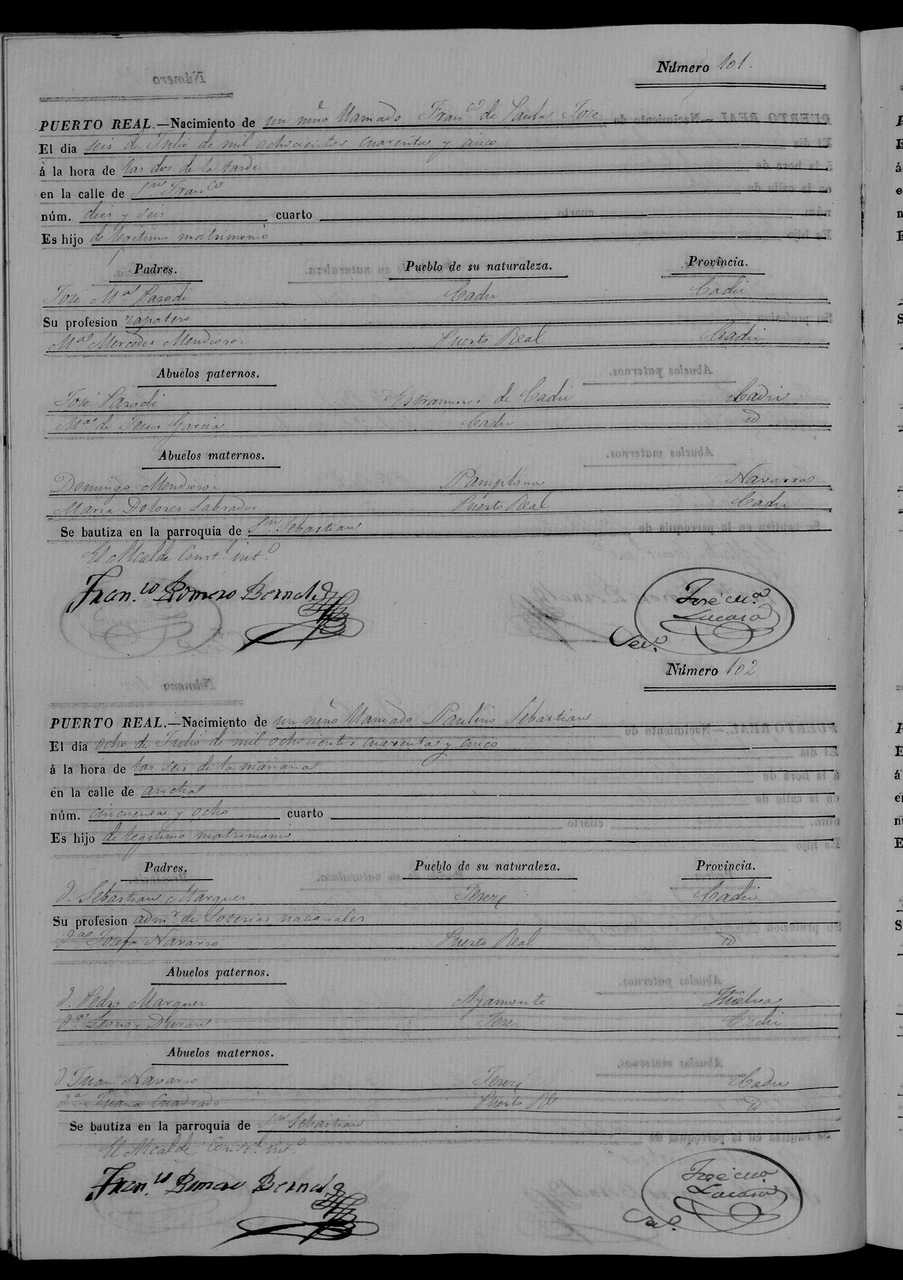 Número 101.
PUERTO REAL.—Nacimiento de un niño llamado Franco de Paula José
El dia seis de Julio de mil ochocientos cuarenta y cinco
á la hora de las dos de la tarde
en la calle de Sn Franco
núm. diez y seis cuarto
Es hijo de legitimo matrimonio
Padres. Pueblo de su naturaleza. Provincia.
José Ma Parodi Cadiz Cadiz
Su profesion zapatero
Ma Mercedes Mendioroz Puerto Real Cadiz
Abuelos paternos.
José Parodi de Cadiz Cadiz
Ma de Jesus Garcia Cadiz id
Abuelos maternos.
Domingo Mendioroz Pamplona Navarra
Maria Dolores Labrador Puerto Real Cadiz
Se bautiza en la parroquia de Sn Sebastian
El Alcalde Constl intо
Fran.co Romero Bernal
José Ma Lucas
Sec.o
Número 102
PUERTO REAL.—Nacimiento de un niño llamado Paulino Sebastian
El dia ocho de Julio de mil ochocientos cuarenta y cinco
á la hora de las seis de la mañana
en la calle de ancha
núm. cincuenta y ocho cuarto
Es hijo de legitimo matrimonio
Padres. Pueblo de su naturaleza. Provincia.
D. Sebastian Marquez Jerez Cadiz
Su profesion admr de Loterias nacionales
Da Josefa Navarro Puerto Real id
Abuelos paternos.
D. Pedro Marquez Ayamonte Huelva
Da Leonor Duran Jerez Cadiz
Abuelos maternos.
D Juan Navarro Jerez Cadiz
Da Juana Cuadrado Puerto Rl id
Se bautiza en la parroquia de Sn Sebastian
El Alcalde Constl into
Fran.co Romero Bernal
José Ma Lucas
Sec.o